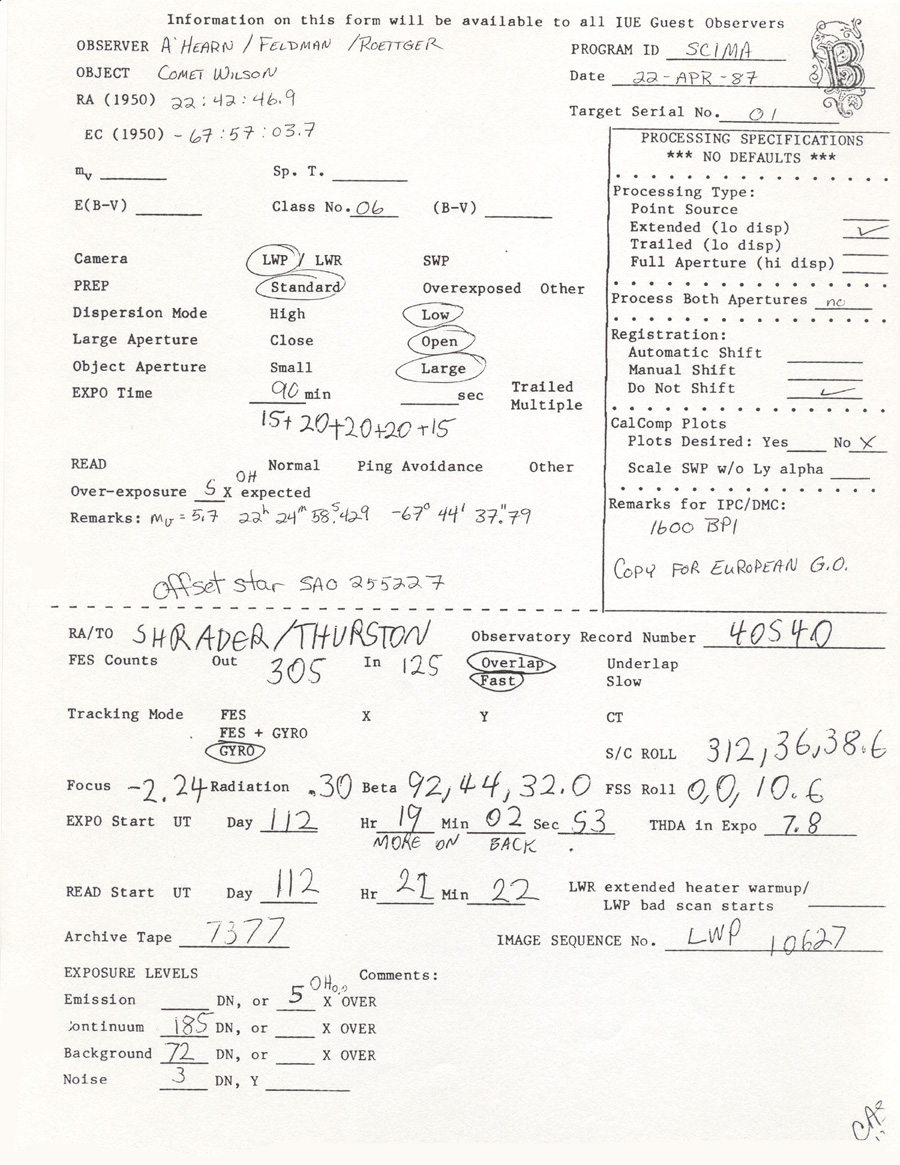 Information on this form will be available to all IUE Guest Observers
OBSERVER A'HEARN / FELDMAN / ROETTGER PROGRAM ID SCIMA
B
OBJECT COMET WILSON Date 22-APR-87
RA (1950) 22:42:46.9 Target Serial No. 01
EC (1950) -67:57:03.7
PROCESSING SPECIFICATIONS
*** NO DEFAULTS ***
mv ____ Sp. T. ____
E(B-V) ____ Class No. 06 (B-V) ____
Processing Type:
Point Source ____
Extended (lo disp) ✓
Trailed (lo disp) ____
Full Aperture (hi disp) ____
Camera LWP / LWR SWP
PREP Standard Overexposed Other
Process Both Apertures no
Dispersion Mode High Low
Large Aperture Close Open
Object Aperture Small Large
EXPO Time 90 min ____ sec Trailed
Multiple
15+20+20+20+15
Registration:
Automatic Shift ____
Manual Shift ____
Do Not Shift ✓
CalComp Plots
Plots Desired: Yes ____ No X
Scale SWP w/o Ly alpha ____
READ Normal Ping Avoidance Other
OH
Over-exposure 5 X expected
Remarks: mv = 5.7 22h 24m 58s.429 -67° 44' 37."79
Offset star SAO 255227
Remarks for IPC/DMC:
1600 BPI
COPY FOR EUROPEAN G.O.
RA/TO SHRADER/THURSTON Observatory Record Number 40540
FES Counts Out 305 In 125 Overlap Underlap
Fast Slow
Tracking Mode FES X Y CT
FES + GYRO
GYRO S/C ROLL 312,36,38.6
Focus -2.24 Radiation .30 Beta 92,44,32.0 FSS Roll 0,0,10.6
EXPO Start UT Day 112 Hr 19 Min 02 Sec 53 THDA in Expo 7.8
MORE ON BACK.
READ Start UT Day 112 Hr 21 Min 22 LWR extended heater warmup/
LWP bad scan starts ____
Archive Tape 7377 IMAGE SEQUENCE No. LWP 10627
EXPOSURE LEVELS Comments:
Emission ____ DN, or 5 X OVER
Continuum 185 DN, or ____ X OVER
Background 72 DN, or ____ X OVER
Noise 3 DN, Y ____